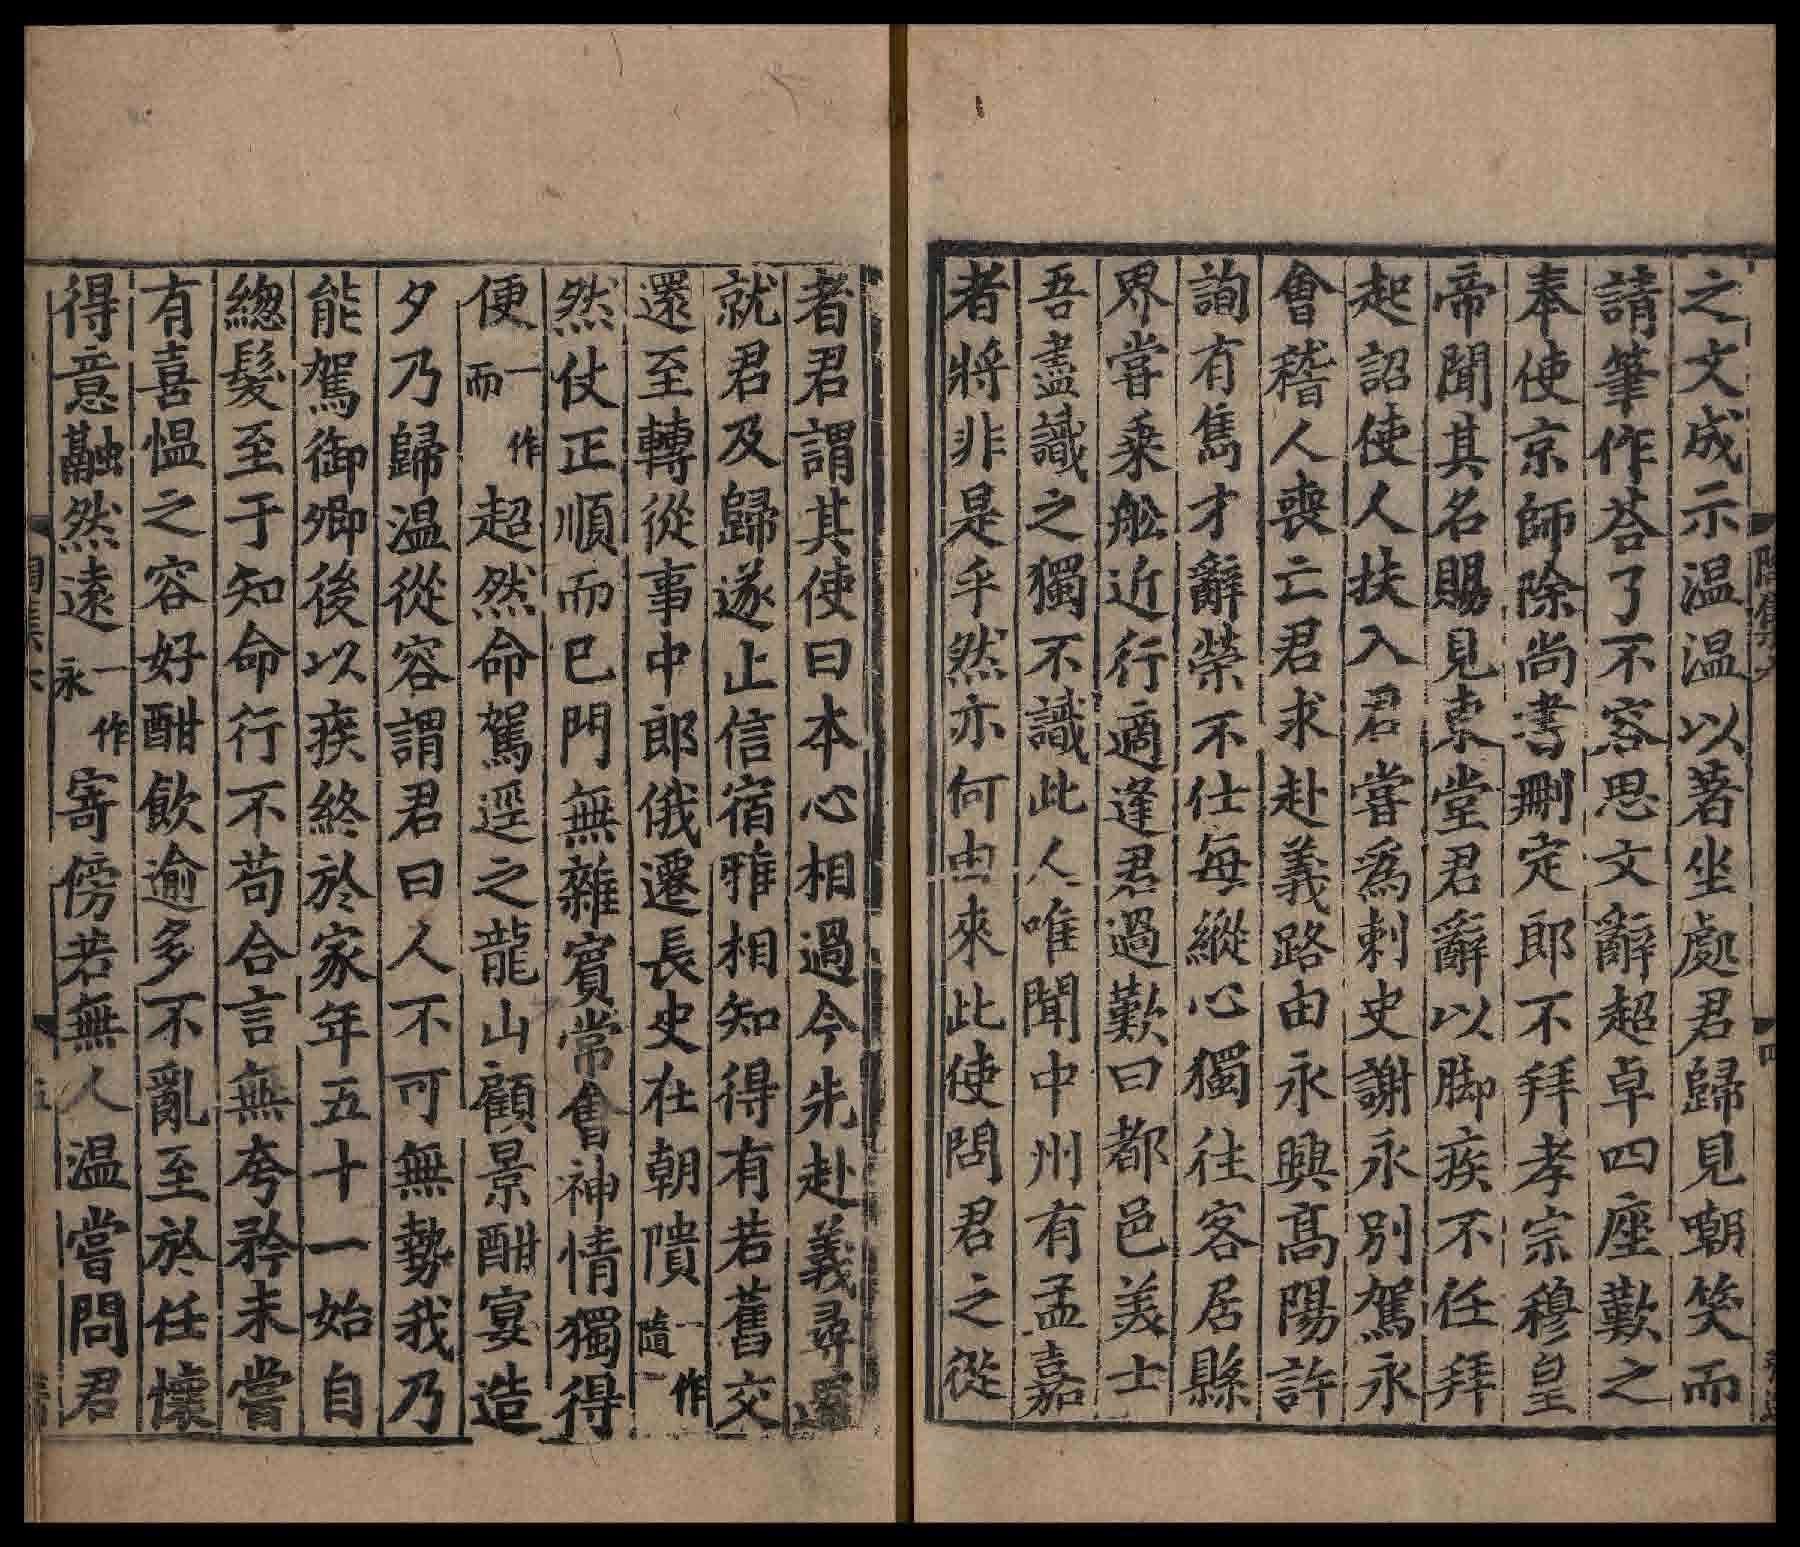 之文成示温温以著坐處君歸見嘲笑而
請筆作荅了不容思文辭超卓四座歎之
奉使京師除尚書刪定郎不拜孝宗穆皇
帝聞其名賜見東堂君辭以脚疾不任拜
起詔使人扶入君嘗爲刺史謝永别駕永
會稽人喪亡君求赴義路由永興髙陽許
詢有雋才辭榮不仕每縱心獨往客居縣
界嘗乗舩近行適逢君過歎曰都邑美士
吾盡識之獨不識此人唯聞中州有孟嘉
者將非是乎然亦何由來此使問君之從
者君謂其使曰本心相過今先赴義尋還
就君及歸遂止信宿雅相知得有若舊交
還至轉從事中郎俄遷長史在朝隤一作隨
然仗正順而已門無雜賓常㑹神情獨得
便一作而超然命駕逕之龍山顧景酣宴造
夕乃歸温從容謂君曰人不可無勢我乃
能駕御卿後以疾終於家年五十一始自
緫髮至于知命行不苟合言無夸矜未嘗
有喜愠之容好酣飲逾多不亂至於任懷
得意融然遠一作永寄傍若無人温嘗問君